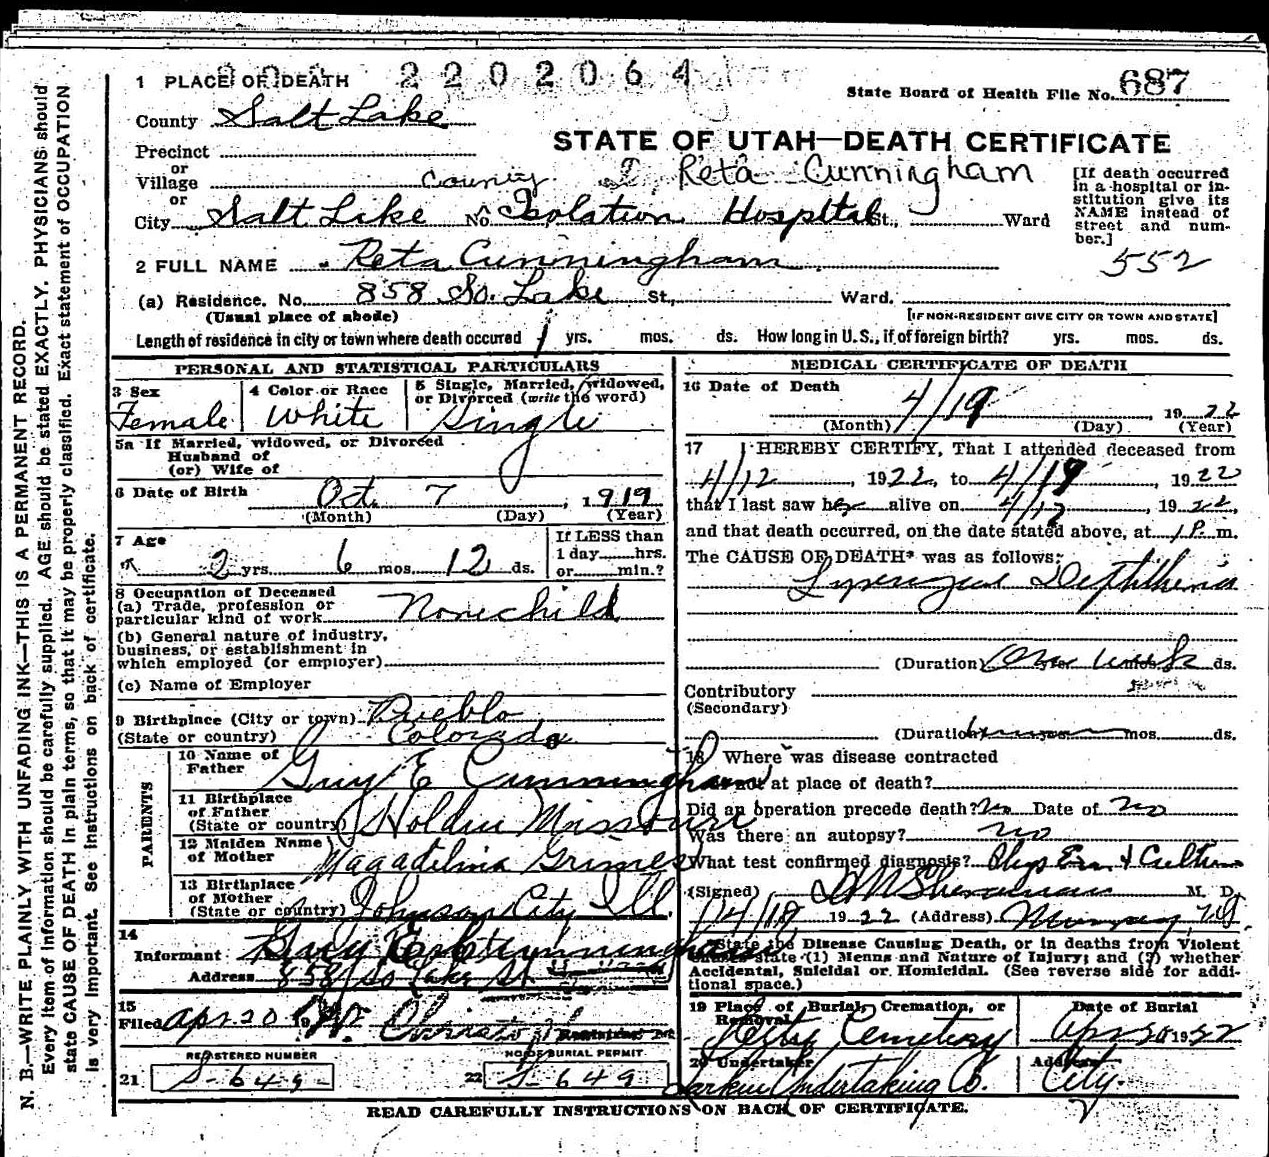 1 PLACE OF DEATH 2202064
State Board of Health File No. 687
County Salt Lake
STATE OF UTAH—DEATH CERTIFICATE
Precinct
or
Village County Reta Cunningham
or
City Salt Lake No Isolation Hospital St., Ward
[If death occurred
in a hospital or in-
stitution give its
NAME instead of
street and num-
ber.]
552
2 FULL NAME Reta Cunningham
(a) Residence. No. 858 So. Lake St., Ward.
(Usual place of abode) [IF NON-RESIDENT GIVE CITY OR TOWN AND STATE]
Length of residence in city or town where death occured 1 yrs. mos. ds. How long in U.S., if of foreign birth? yrs. mos. ds.
PERSONAL AND STATISTICAL PARTICULARS
3 Sex 4 Color or Race 5 Single, Married, widowed,
or Divorced (write the word)
Female White Single
5a If Married, widowed, or Divorced
Husband of
(or) Wife of
6 Date of Birth Oct. 7, 1919
(Month) (Day) (Year)
7 Age If LESS than
2 yrs. 6 mos 12 ds. 1 day hrs.
or min.?
8 Occupation of Deceased
(a) Trade, profession or
particular kind of work None child
(b) General nature of industry,
business, or establishment in
which employed (or employer)
(c) Name of Employer
9 Birthplace (City or town) Pueblo
(State or country) Colorado
PARENTS
10 Name of
Father Guy E Cunningham
11 Birthplace
of Father
(State or country) Holden Missouri
12 Maiden Name
of Mother Magadelina Grimes
13 Birthplace
of Mother
(State or country) Johnson City Ill.
14
Informant Guy E Cunningham
Address 858 So Lake St.
15
Filed Apr. 20 19
REGISTERED NUMBER NO. OF BURIAL PERMIT
21 S-649 22 S-649
MEDICAL CERTIFICATE OF DEATH
16 Date of Death
4/19, 1922
(Month) (Day) (Year)
17 I HEREBY CERTIFY, That I attended deceased from
4/12, 1922, to 4/19, 1922
that I last saw her alive on 4/17, 1922,
and that death occurred, on the date stated above, at 1 P. m.
The CAUSE OF DEATH* was as follows:
Diphtheria
(Duration) One week ds.
Contributory
(Secondary)
(Duration) mos. ds.
18 Where was disease contracted
if not at place of death?
Did an operation precede death? No Date of no
Was there an autopsy? no
What test confirmed diagnosis? Phys Exm. & Culture
(Signed) M. D.
4/19 1922 (Address) Murray Ut
*State the Disease Causing Death, or in deaths from Violent
Causes state (1) Menns and Nature of Injury; and (2) whether
Accidental, Suicidal or Homicidal. (See reverse side for addi-
tional space.)
19 Place of Burial, Cremation, or
Removal Date of Burial
City Cemetery Apr 20 1922
20 Undertaker Address
Larkin Undertaking Co. City.
READ CAREFULLY INSTRUCTIONS ON BACK OF CERTIFICATE.
N. B.—WRITE PLAINLY WITH UNFADING INK—THIS IS A PERMANENT RECORD.
Every item of information should be carefully supplied. AGE should be stated EXACTLY. PHYSICIANS should
state CAUSE OF DEATH in plain terms, so that it may be properly classified. Exact statement of OCCUPATION
is very important. See instructions on back of certificate.